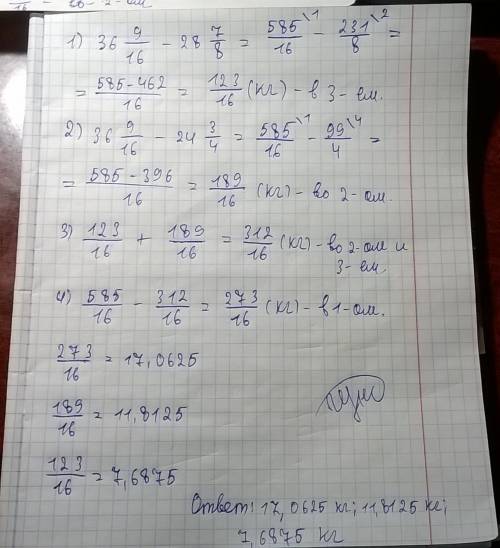 1) 36 9/16 - 28 7/8 = 585/16 \1 - 231/8 \2 =
= 585-462/16 = 123/16 (кг) - в 3-ем.
2) 36 9/16 - 24 3/4 = 585/16 \1 - 99/4 \4 =
= 585-396/16 = 189/16 (кг) - во 2-ом.
3) 123/16 + 189/16 = 312/16 (кг) - во 2-ом и
3-ем.
4) 585/16 - 312/16 = 273/16 (кг) - в 1-ом.
273/16 = 17,0625
189/16 = 11,8125
123/16 = 7,6875
Ответ: 17,0625 кг; 11,8125 кг;
7,6875 кг